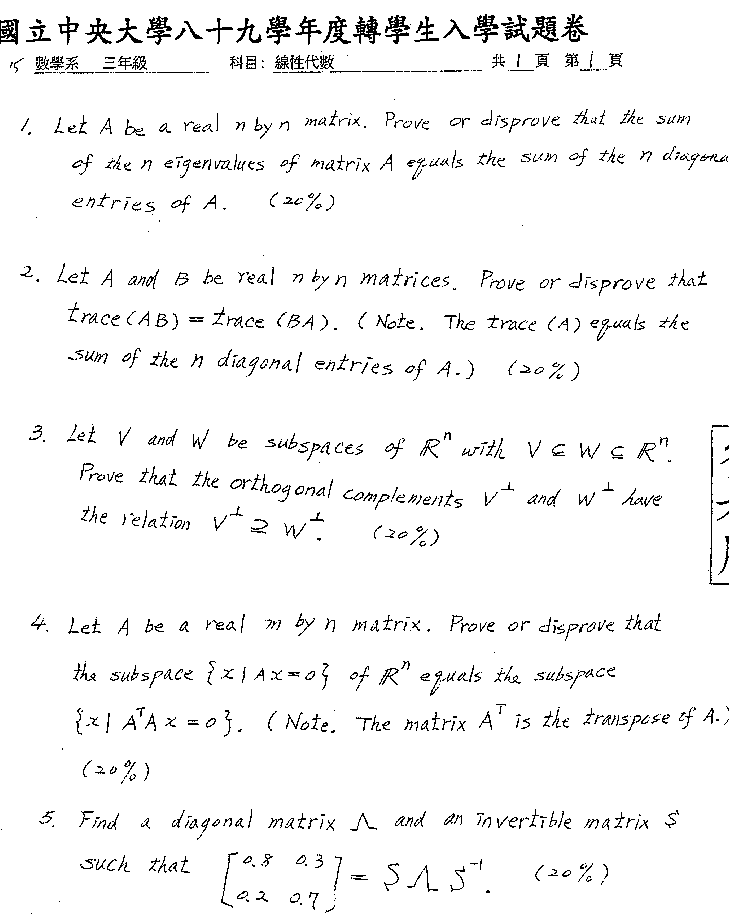 國立中央大學八十九學年度轉學生入學試題卷
15 數學系 三年級 科目: 線性代數 共 1 頁 第 1 頁
1. Let A be a real n by n matrix. Prove or disprove that the sum
of the n eigenvalues of matrix A equals the sum of the n diagona
entries of A. (20%)
2. Let A and B be real n by n matrices. Prove or disprove that
trace (AB) = trace (BA). (Note. The trace (A) equals the
sum of the n diagonal entries of A.) (20%)
3. Let V and W be subspaces of ℝⁿ with V ⊆ W ⊆ ℝⁿ.
Prove that the orthogonal complements V^⊥ and W^⊥ have
the relation V^⊥ ⊇ W^⊥. (20%)
4. Let A be a real m by n matrix. Prove or disprove that
the subspace {x | Ax = 0} of ℝⁿ equals the subspace
{x | AᵀAx = 0}. (Note. The matrix Aᵀ is the transpose of A.)
(20%)
5. Find a diagonal matrix Λ and an invertible matrix S
such that [0.8 0.3; 0.2 0.7] = S Λ S⁻¹. (20%)